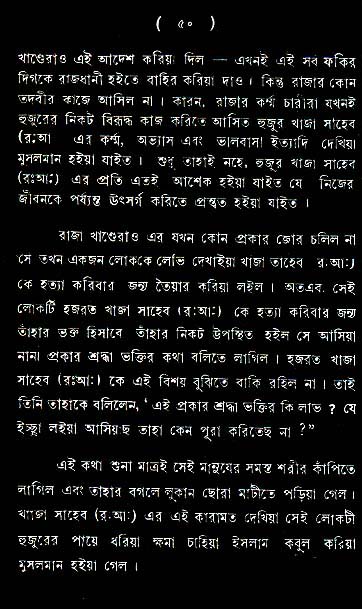 ( ৫০ )
খাণ্ডেরাও এই আদেশ করিয়া দিল — এখনই এই সব ফকির
দিগকে রাজধানী হইতে বাহির করিয়া দাও। কিন্তু রাজার কোন
তদবীর কাজে আসিল না। কারন, রাজার কর্ম্ম চারীরা যখনই
হুজুরের নিকট বিরূদ্ধ কাজ করিতে আসিত হুজুর খাজা সাহেব
(র:আ: এর কর্ম্ম, অভ্যাস এবং ভালবাসা ইত্যাদি দেখিয়া
মুসলমান হইয়া যাইত। শুধু তাহাই নহে, হুজুর খাজা সাহেব
(রঃআঃ) এর প্রতি এতই আশেক হইয়া যাইত যে নিজের
জীবনকে পর্য্যন্ত উৎসর্গ করিতে প্রস্তুত হইয়া যাইত।
রাজা খাণ্ডেরাও এর যখন কোন প্রকার জোর চলিল না
সে তখন একজন লোককে লোভ দেখাইয়া খাজা তাহেব র.আ:)
কে হত্যা করিবার জন্য তৈয়ার করিয়া লইল। অতএব, সেই
লোকটি হজরত খাজা সাহেব (র:আ:) কে হত্যা করিবার জন্য
তাঁহার ভক্ত হিসাবে তাঁহার নিকট উপস্থিত হইল সে আসিয়া
নানা প্রকার শ্রদ্ধা ভক্তির কথা বলিতে লাগিল। হজরত খাজা
সাহেব (রঃআঃ) কে এই বিশয় বুঝিতে বাকি রহিল না। তাই
তিনি তাহাকে বলিলেন, ‘ এই প্রকার শ্রদ্ধা ভক্তির কি লাভ ? যে
ইচ্ছা লইয়া আসিয়াছ তাহা কেন পুরা করিতেছ না ?”
এই কথা শুনা মাত্রই সেই মানুষের সমস্ত শরীর কাঁপিতে
লাগিল এবং তাহার বগলে লুকান ছোরা মাটীতে পড়িয়া গেল।
খাজা সাহেব (র.আ:) এর এই কারামত দেখিয়া সেই লোকটী
হুজুরের পায়ে ধরিয়া ক্ষমা চাহিয়া ইসলাম কবুল করিয়া
মুসলমান হইয়া গেল।